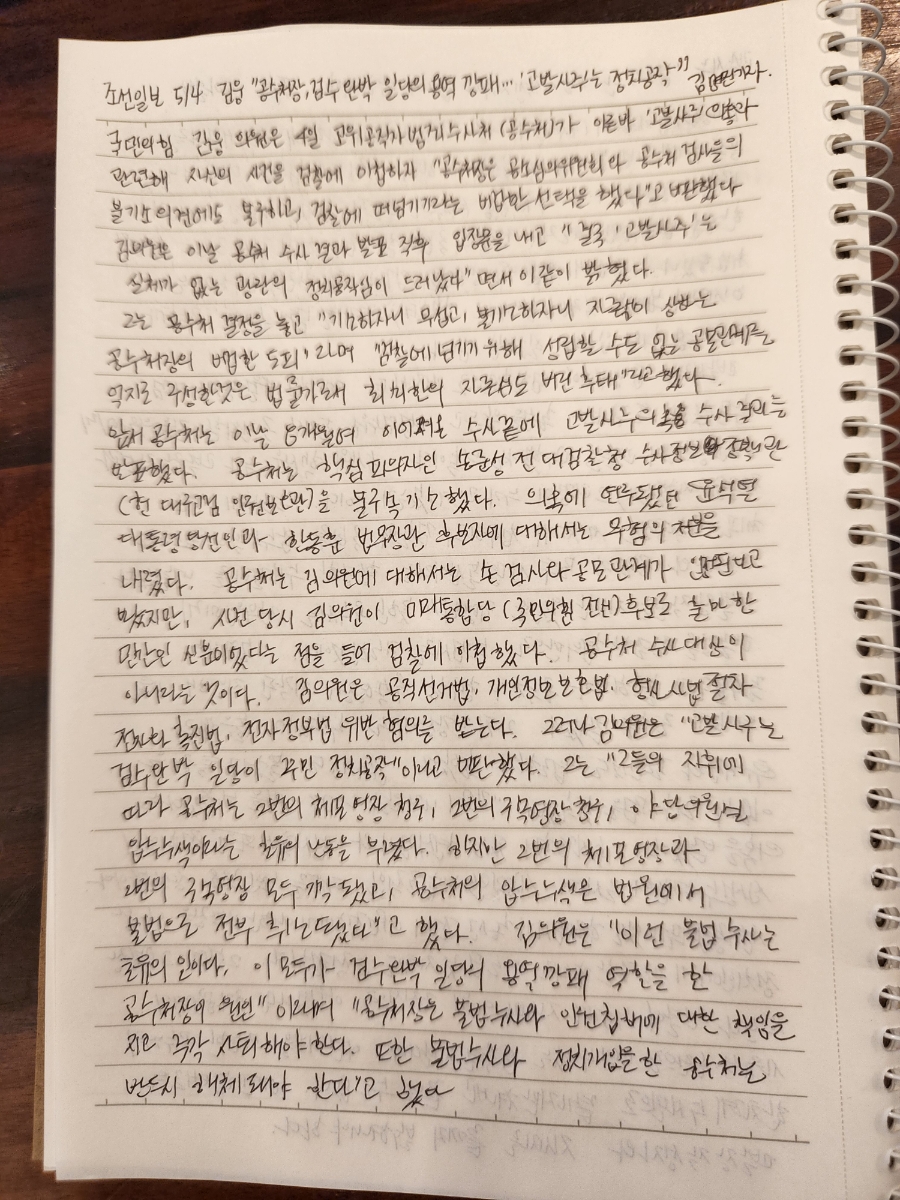 조선일보 5/4 김웅 "공수처장, 검수완박 일당의 용역 깡패… '고발사주'는 정치공작" 김 기자.
국민의힘 김웅 의원은 4일 고위공직자범죄수사처 (공수처)가 이른바 '고발사주' 의혹과
관련해 자신의 사건을 검찰에 이첩하자 "공수처장은 공소심의위원회와 공수처 검사들의
불기소 의견에도 불구하고, 검찰에 떠넘기기라는 비겁한 선택을 했다"고 비판했다
김의원은 이날 공수처 수사 결과 발표 직후 입장문을 내고 "결국 '고발사주'는
실체가 없는 광란의 정치공작임이 드러났다" 면서 이같이 밝혔다.
그는 공수처 결정을 놓고 "기소하자니 무섭고, 불기소하자니 자존심이 상하는
공수처장의 비겁한 도피" 라며 "검찰에 넘기기 위해 성립할 수도 없는 공모관계를
억지로 구성한것은 법률가로서 최소한의 자존심도 버린 추태"라고 했다.
앞서 공수처는 이날 8개월여 이어져온 수사끝에 고발사주의혹 수사 결과를
발표했다. 공수처는 핵심 피의자인 손준성 전 대검찰청 수사정보정책관
(현 대구고검 인권보호관)을 불구속 기소했다. 의혹에 연루됐던 윤석열
대통령 당선인과 한동훈 법무장관 후보자에 대해서는 무혐의 처분을
내렸다. 공수처는 김의원에 대해서는 손 검사와 공모관계가 인정된다고
봤지만, 사건 당시 김의원이 미래통합당 (국민의힘 전신) 후보로 출마한
민간인 신분이었다는 점을 들어 검찰에 이첩했다. 공수처 수사 대상이
아니라는 것이다. 김의원은 공직선거법, 개인정보보호법, 형사사법절차
전자화 촉진법, 전자정부법 위반 혐의를 받는다. 그러나 김의원은 "고발사주는
검수완박 일당이 꾸민 정치공작"이라고 비판했다. 그는 "그들의 지휘에
따라 공수처는 2번의 체포영장 청구, 2번의 구속영장 청구, 야당의원실
압수수색이라는 초유의 난동을 부렸다. 하지만 2번의 체포영장과
2번의 구속영장 모두 기각 됐고, 공수처의 압수수색은 법원에서
불법으로 전부 취소됐다"고 했다. 김의원은 "이런 불법 수사는
초유의 일이다. 이 모두가 검수완박 일당의 용역깡패 역할을 한
공수처장이 원인" 이라며 "공수처장은 불법수사와 인권침해에 대한 책임을
지고 즉각 사퇴해야 한다. 또한 불법수사와 정치개입을 한 공수처는
반드시 해체돼야 한다"고 했다